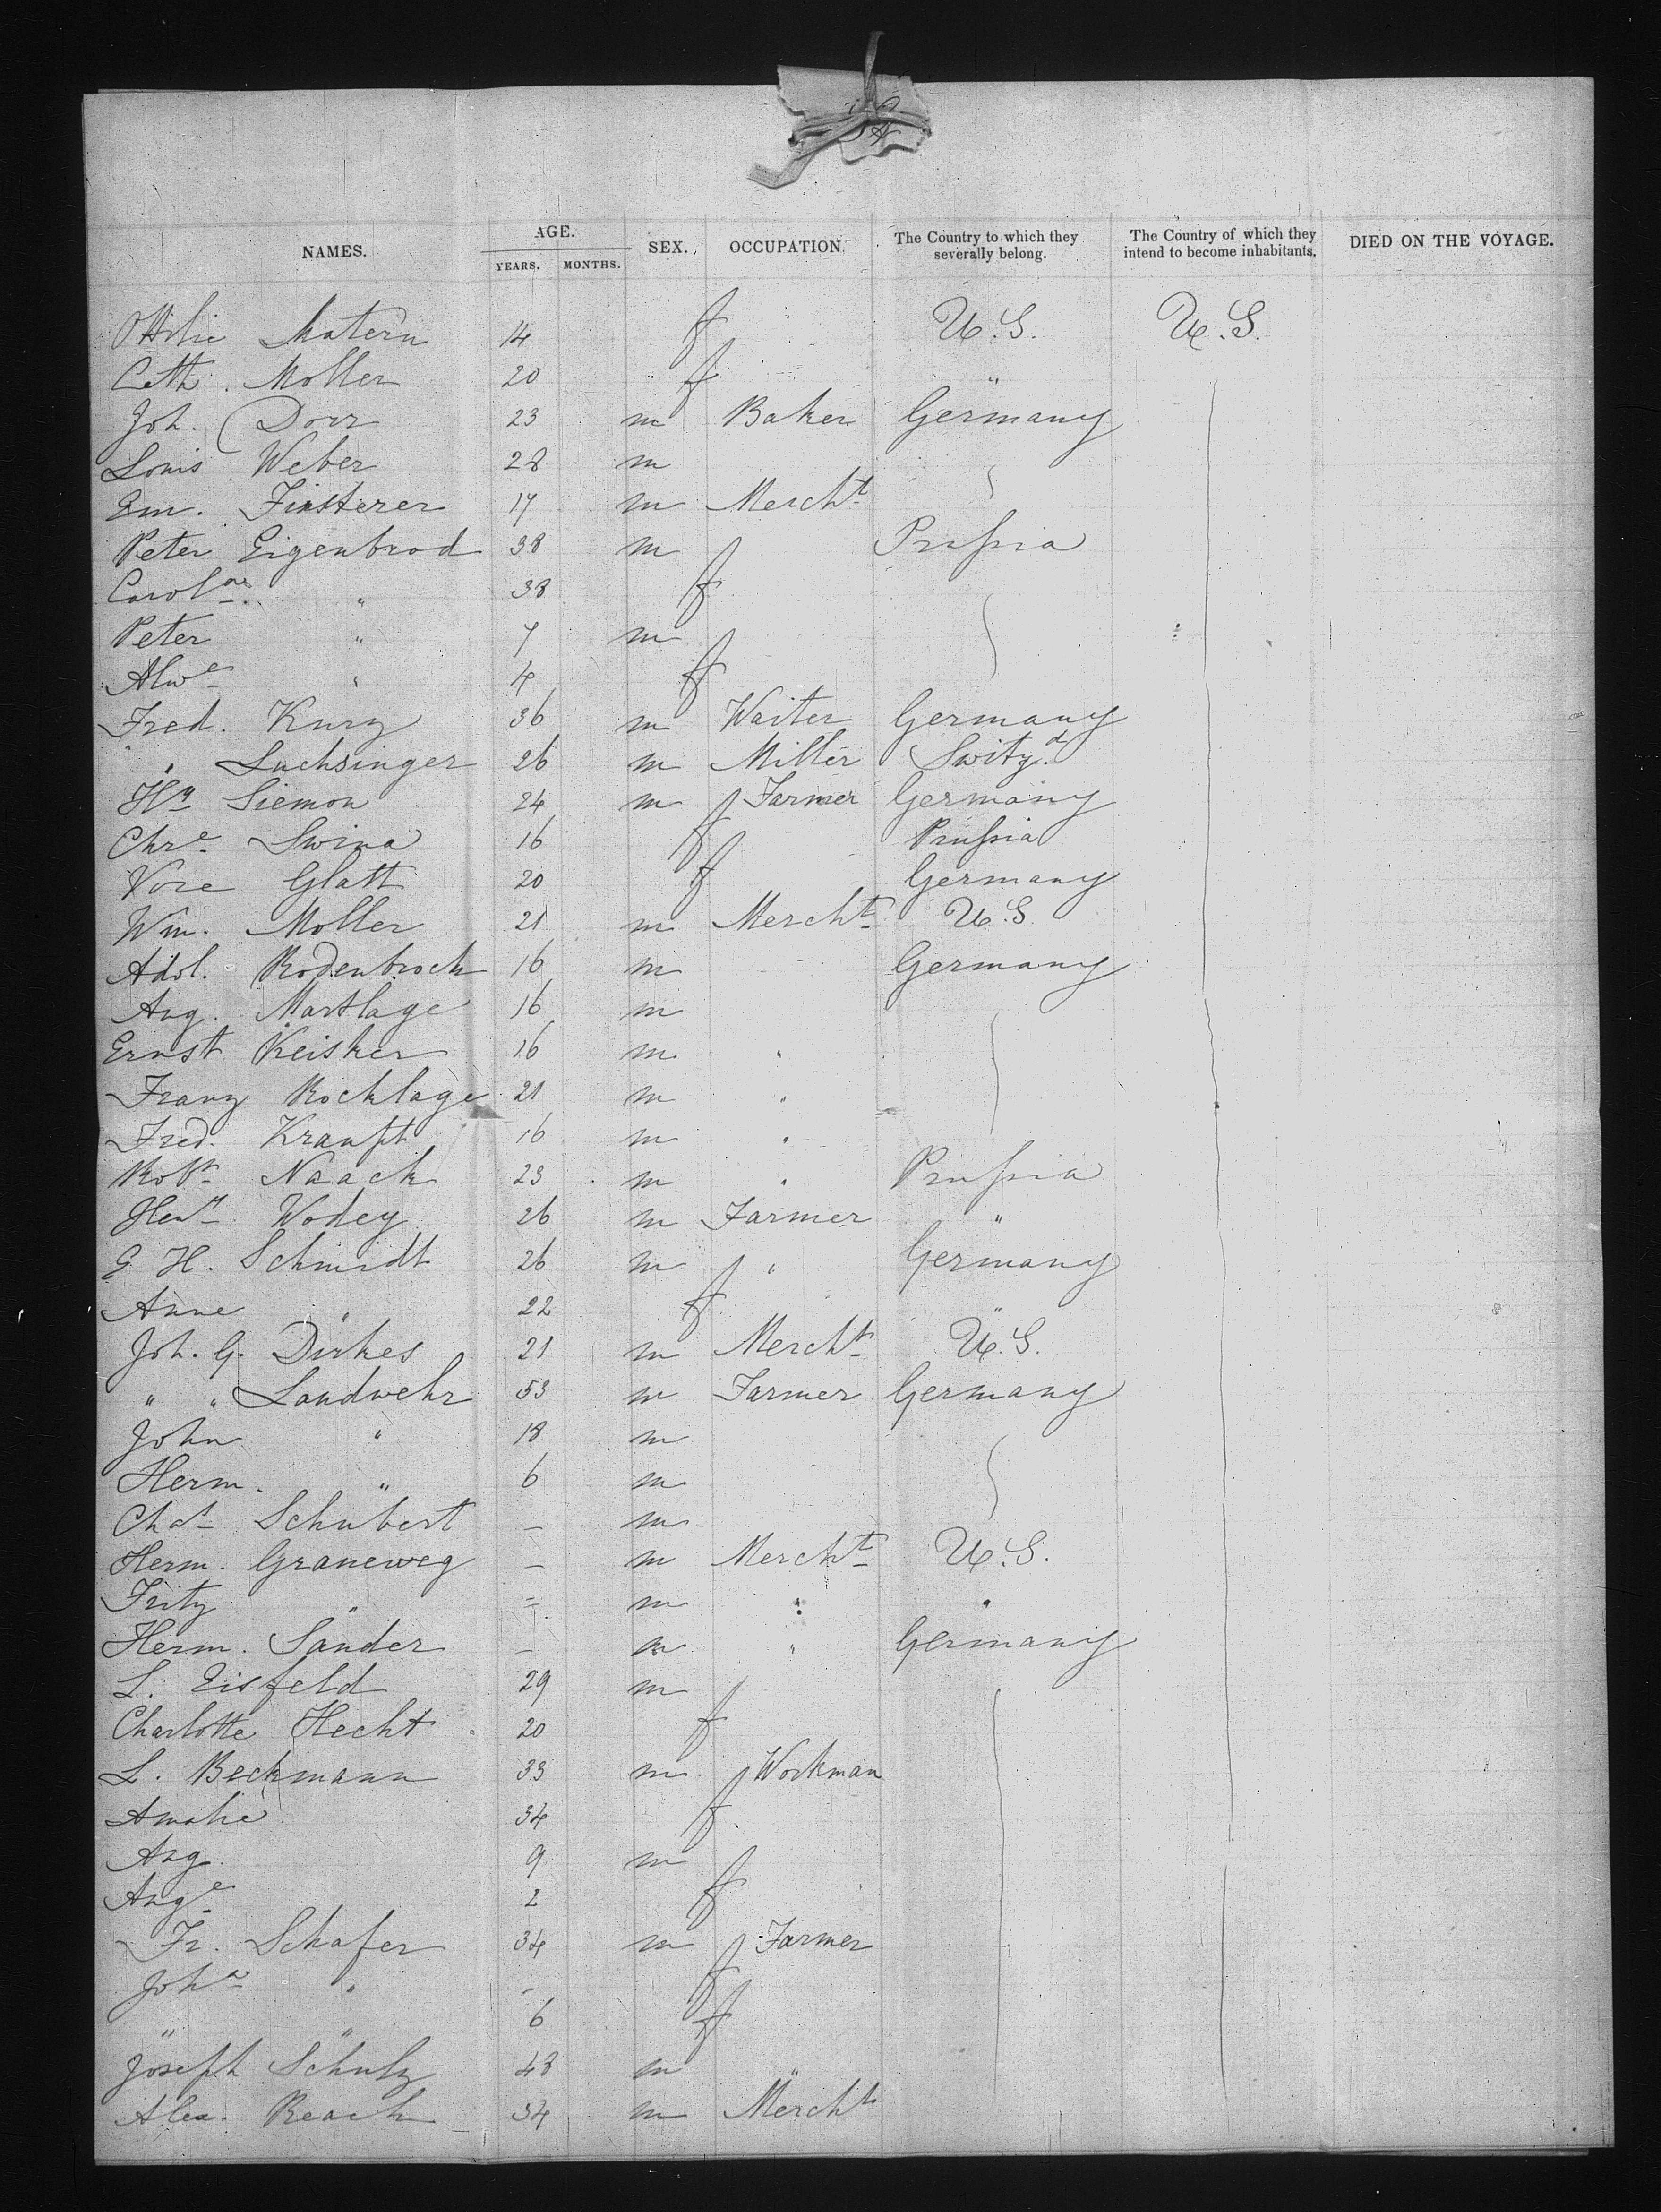 NAMES. AGE. YEARS. MONTHS. SEX. OCCUPATION. The Country to which they severally belong. The Country of which they intend to become inhabitants. DIED ON THE VOYAGE.
Ottilie Matern 14 f U.S. U.S.
Cath. Moller 20 f "
Joh. Dorr 23 m Baker Germany
Louis Weber 28 m
Em. Finsterer 17 m Mercht
Peter Eigenbrod 38 m Prussia
Carolne " 38 f
Peter " 7 m
Alwe " 4 f
Fred. Kurz 36 m Waiter Germany
" Luchsinger 26 m Miller Switzd
Hy Siemon 24 m Farmer Germany
Chre Swina 16 f Prussia
Vore Glatt 20 f Germany
Wm. Moller 21 m Mercht U.S.
Adol. Rodenbrock 16 m Germany
Aug. Martlage 16 m
Ernst Keisker 16 m "
Franz Rocklage 21 m "
Fred. Kranft 16 m "
Robt Naack 23 m " Prussia
Heny Wodey 26 m Farmer "
G. H. Schmidt 26 m " Germany
Anne " 22 f "
Joh. G. Dirkes 21 m Mercht U.S.
" " Landwehr 53 m Farmer Germany
John " 18 m
Herm. " 6 m
Chas Schubert – m
Herm. Graneweg – m Mercht U.S.
Fritz " = m " "
Herm. Sander – m " Germany
L. Eisfeld 29 m
Charlotte Hecht 20 f
L. Beckmann 33 m Workman
Amalie 34 f
Aug. 9 m
Auge 2 f
Fr. Schafer 34 m Farmer
Joha " – f
" " 6 f
Joseph Schulz 48 m "
Alex. Reach 34 m Mercht